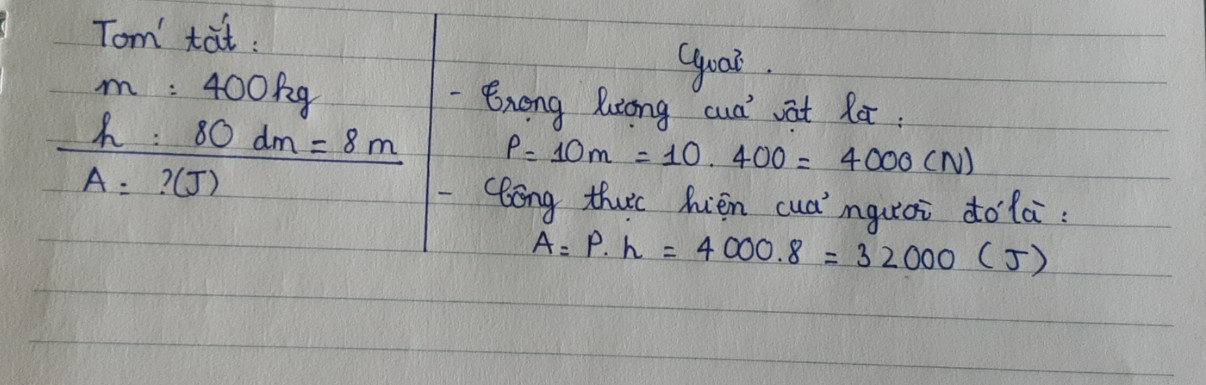 Tóm tắt :
m : 400kg
h : 80 dm = 8 m
A = ?(J)
Giải .
- Trọng lượng của vật là :
P = 10m = 10 . 400 = 4000 (N)
- Công thực hiện của người đó là :
A = P . h = 4000.8 = 32000 (J)